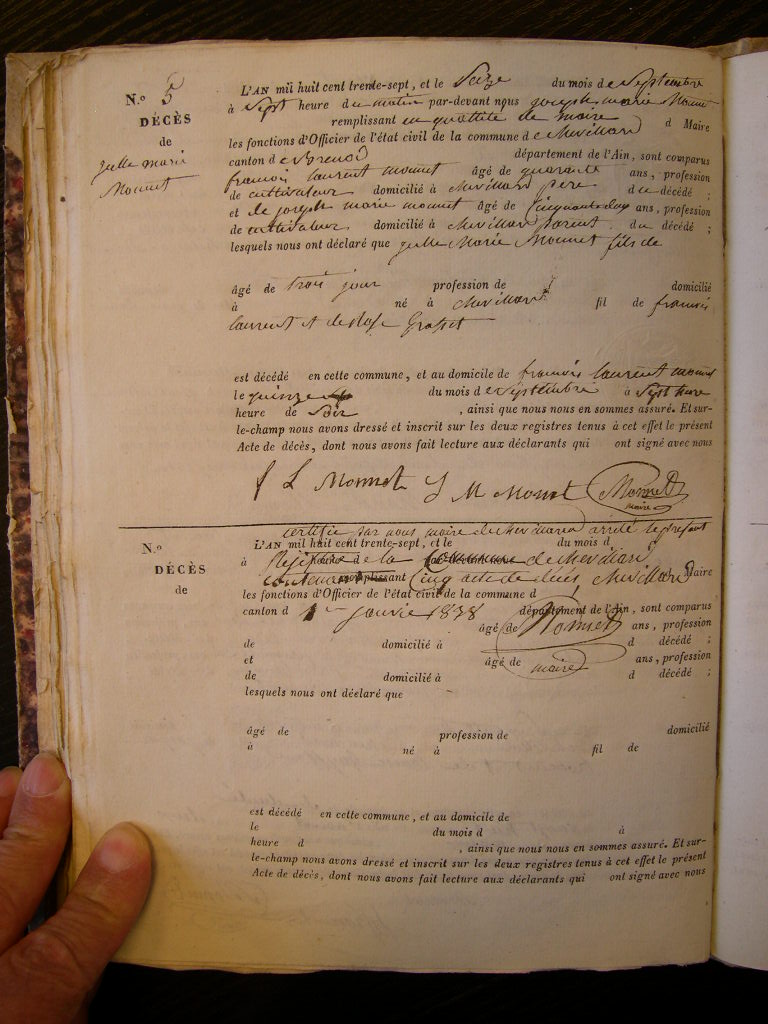 N.o 5
DÉCÈS
de
julle marie
Monnet
L'AN mil huit cent trente-sept, et le Seize du mois de Septembre
à Sept heure du matin par-devant nous joseph marie Monnet
remplissant en quallité de maire d Maire
les fonctions d'Officier de l'état civil de la commune de chevillard
canton de Brenod département de l'Ain, sont comparus
francois laurent monnet âgé de quarante ans, profession
de cultivateur domicilié à chevillard pere du décédé ;
et de joseph marie monnet âgé de Cinquante ans, profession
de cultivateur domicilié à chevillard parent du décédé ;
lesquels nous ont déclaré que julle Marie Monnet fils de
âgé de trois jour profession de domicilié
à né à chevillard fil de francois
laurent et de Grosset
est décédé en cette commune, et au domicile de francois laurent monnet
le quinze du mois de Septembre à Sept heure
heure de Soir , ainsi que nous nous en sommes assuré. Et sur-
le-champ nous avons dressé et inscrit sur les deux registres tenus à cet effet le présent
Acte de décès, dont nous avons fait lecture aux déclarants qui ont signé avec nous
f L Monnet J M Monnet Monnet
maire
certifie par nous maire de chevillard arrété le present
N.o
DÉCÈS
de
L'AN mil huit cent trente-sept, et le du mois d
à Registre de la Commune de chevillard
contenant remplissant Cinq acte de deces chevillard Maire
les fonctions d'Officier de l'état civil de la commune d
canton d 1er janvie 1838 département de l'Ain, sont comparus
âgé de Monnet ans, profession
de domicilié à d décédé ;
et âgé de maire ans, profession
de domicilié à d décédé ;
lesquels nous ont déclaré que
âgé de profession de domicilié
à né à fil de
est décédé en cette commune, et au domicile de
le du mois d à
heure d , ainsi que nous nous en sommes assuré. Et sur-
le-champ nous avons dressé et inscrit sur les deux registres tenus à cet effet le présent
Acte de décès, dont nous avons fait lecture aux déclarants qui ont signé avec nous